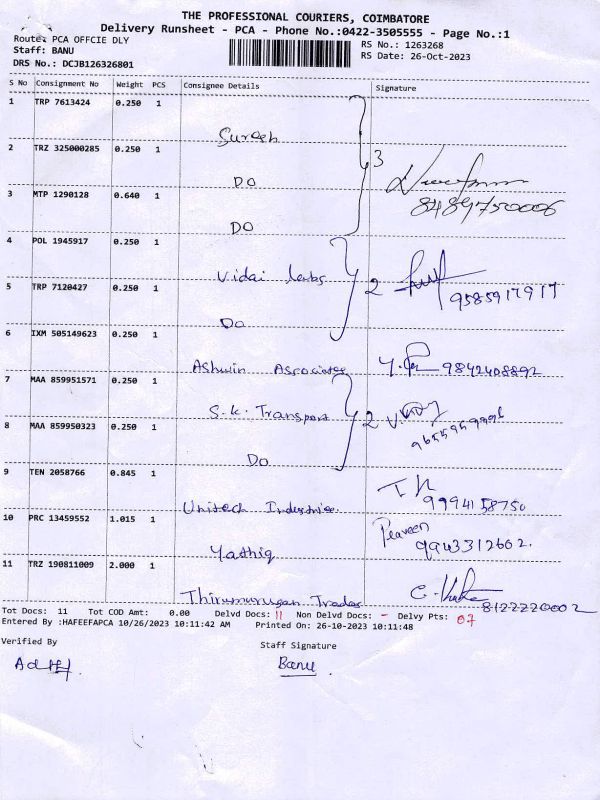 THE PROFESSIONAL COURIERS, COIMBATORE
Delivery Runsheet - PCA - Phone No.:0422-3505555 - Page No.:1
Route: PCA OFFCIE DLY
RS No.: 1263268
Staff: BANU
RS Date: 26-Oct-2023
DRS No.: DCJB126326801
S No Consignment No Weight PCS Consignee Details Signature
1 TRP 7613424 0.250 1
Suresh
2 TRZ 325000285 0.250 1
3
DO
3 MTP 1290128 0.640 1
8489750006
DO
4 POL 1945917 0.250 1
Vidai
5 TRP 7120427 0.250 1
2
9585917917
DO
6 IXM 505149623 0.250 1
Ashwin Associates 9842408892
7 MAA 859951571 0.250 1
S.K. Transport 2
8 MAA 859950323 0.250 1
Do
9 TEN 2058766 0.845 1
Unitech Industries 9994158750
10 PRC 13459552 1.015 1
Praveen
Yathiq 9943312602.
11 TRZ 190811009 2.000 1
Thirumurugan Trades 8122220002
Tot Docs: 11 Tot COD Amt: 0.00 Delvd Docs: 11 Non Delvd Docs: - Delvy Pts: 07
Entered By :HAFEEFAPCA 10/26/2023 10:11:42 AM Printed On: 26-10-2023 10:11:48
Verified By
Staff Signature
Banu